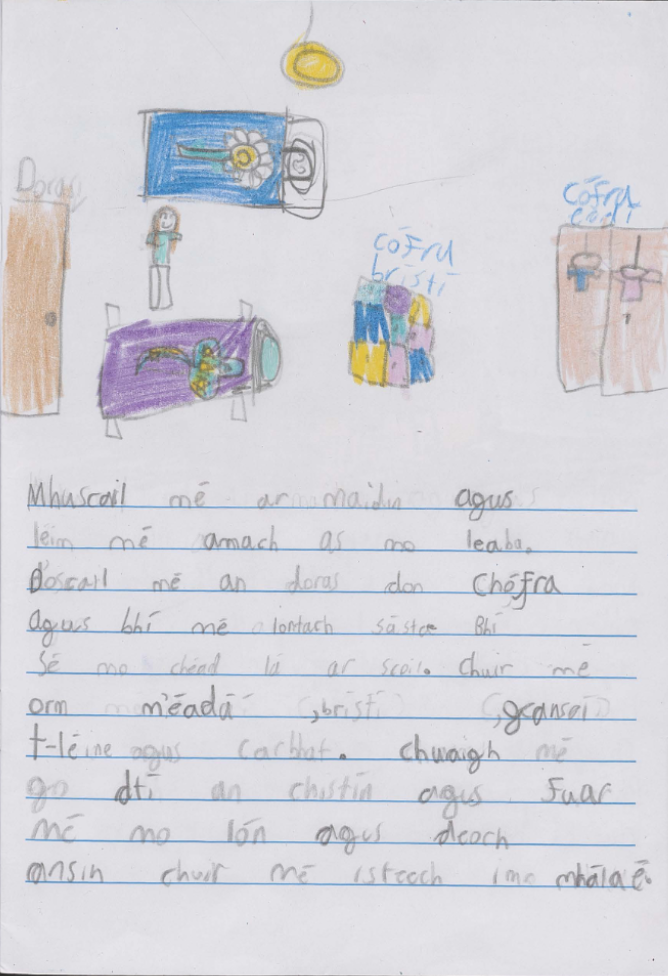 Doras
cófra
bristí
Cófra
éadí
Mhuscail mé ar maidin agus
léim mé amach as mo leaba.
D'oscail mé an doras don Chófra
agus bhí mé iontach sásta Bhí
sé mo chéad lá ar scoil. Chuir mé
orm m'éadaí , bristí , geansaí
t-léine agus carbhat. chuaigh mé
go dtí an chistin agus fuar
mé mo lón agus deoch
ansin chuir mé isteach imo mhála é.